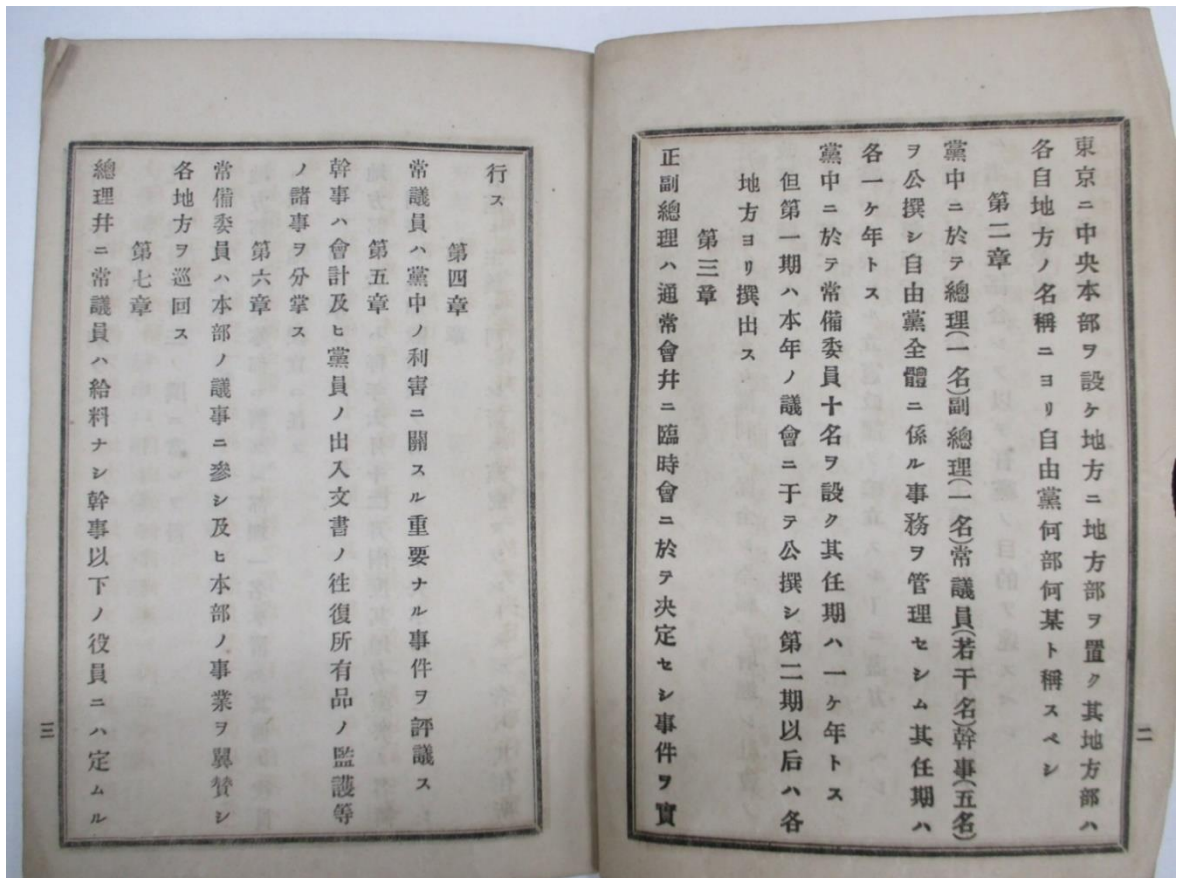 東京ニ中央本部ヲ設ケ地方ニ地方部ヲ置ク其地方部ハ
各自地方ノ名稱ニヨリ自由黨何部何某ト稱スベシ
第二章
黨中ニ於テ總理(一名)副總理(一名)常議員(若干名)幹事(五名)
ヲ公撰シ自由黨全體ニ係ル事務ヲ管理セシム其任期ハ
各一ケ年トス
黨中ニ於テ常備委員十名ヲ設ク其任期ハ一ケ年トス
但第一期ハ本年ノ議會ニ于テ公撰シ第二期以后ハ各
地方ヨリ撰出ス
第三章
正副總理ハ通常會幷ニ臨時會ニ於テ决定セシ事件ヲ實
二
行ス
第四章
常議員ハ黨中ノ利害ニ關スル重要ナル事件ヲ評議ス
第五章
幹事ハ會計及ヒ黨員ノ出入文書ノ徃復所有品ノ監護等
ノ諸事ヲ分掌ス
第六章
常備委員ハ本部ノ議事ニ參シ及ヒ本部ノ事業ヲ翼贊シ
各地方ヲ巡回ス
第七章
總理幷ニ常議員ハ給料ナシ幹事以下ノ役員ニハ定ムル
三